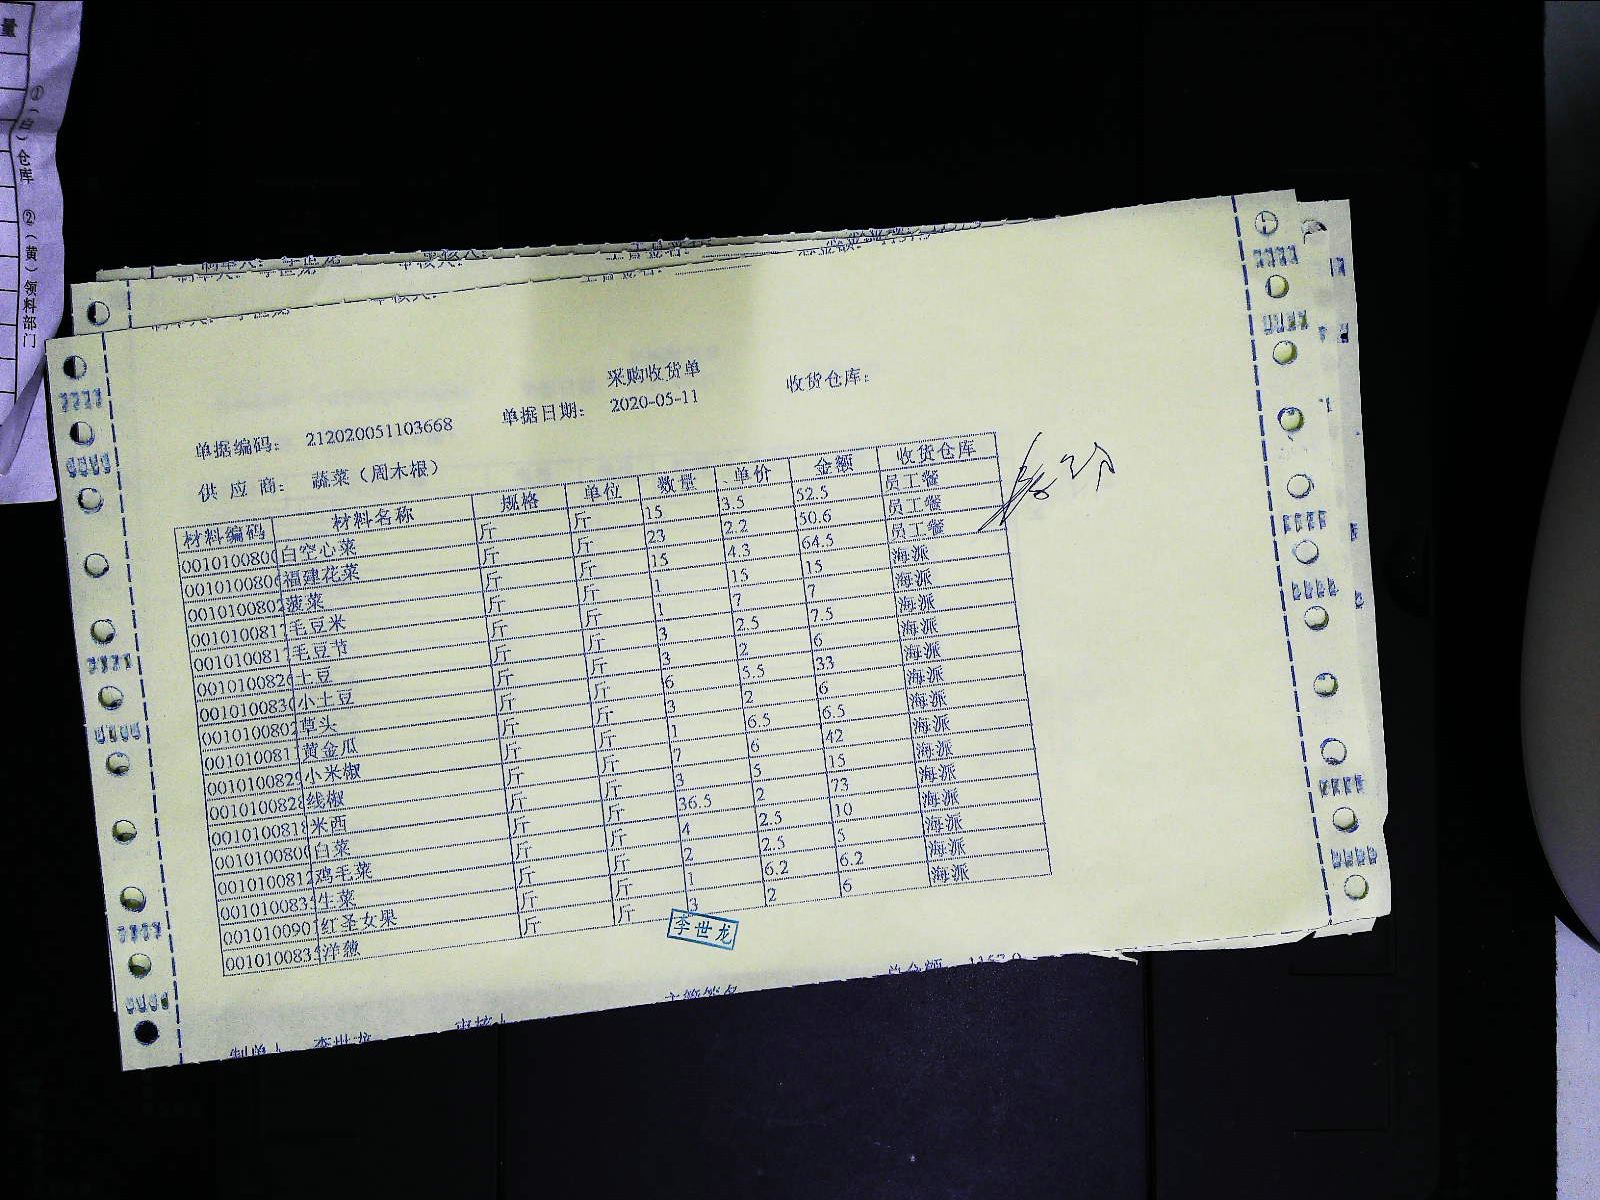 量
①(白)仓库 ②(黄)领料部门
采购收货单
单据编码: 212020051103668 单据日期: 2020-05-11 收货仓库:
供 应 商: 蔬菜(周木根)
材料编码 材料名称 规格 单位 数量 单价 金额 收货仓库
001010080 白空心菜 斤 斤 15 3.5 52.5 员工餐
001010080 福建花菜 斤 斤 23 2.2 50.6 员工餐
001010080 菠菜 斤 斤 15 4.3 64.5 员工餐
001010081 毛豆米 斤 斤 1 15 15 海派
001010081 毛豆节 斤 斤 1 7 7 海派
001010082 土豆 斤 斤 3 2.5 7.5 海派
001010083 小土豆 斤 斤 3 2 6 海派
001010080 草头 斤 斤 6 5.5 33 海派
001010081 黄金瓜 斤 斤 3 2 6 海派
001010082 小米椒 斤 斤 1 6.5 6.5 海派
001010082 线椒 斤 斤 7 6 42 海派
001010081 米西 斤 斤 3 5 15 海派
001010080 白菜 斤 斤 36.5 2 73 海派
001010081 鸡毛菜 斤 斤 4 2.5 10 海派
001010083 生菜 斤 斤 2 2.5 5 海派
001010090 红圣女果 斤 斤 1 6.2 6.2 海派
001010083 洋葱 斤 斤 3 2 6 海派
李世龙
制单人 李世龙